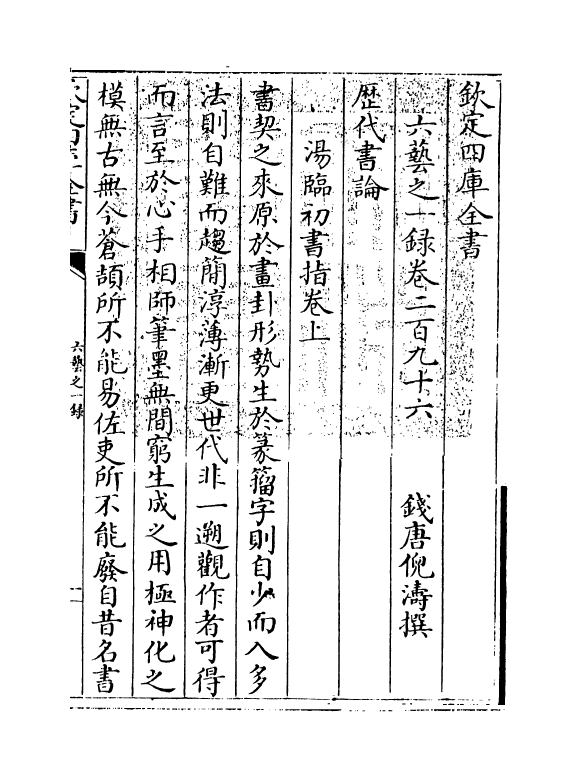 欽定四庫全書
六藝之一録卷二百九十六
錢唐倪濤撰
歴代書論
湯臨初書指卷上
書契之來原於畫卦形勢生於篆籀字則自少而入多
法則自難而趨簡淳薄漸更世代非一遡觀作者可得
而言至於心手相師筆墨無間窮生成之用極神化之
模無古無今蒼頡所不能易佐吏所不能廢自昔名書
欽定四庫全書
六藝之一録
一